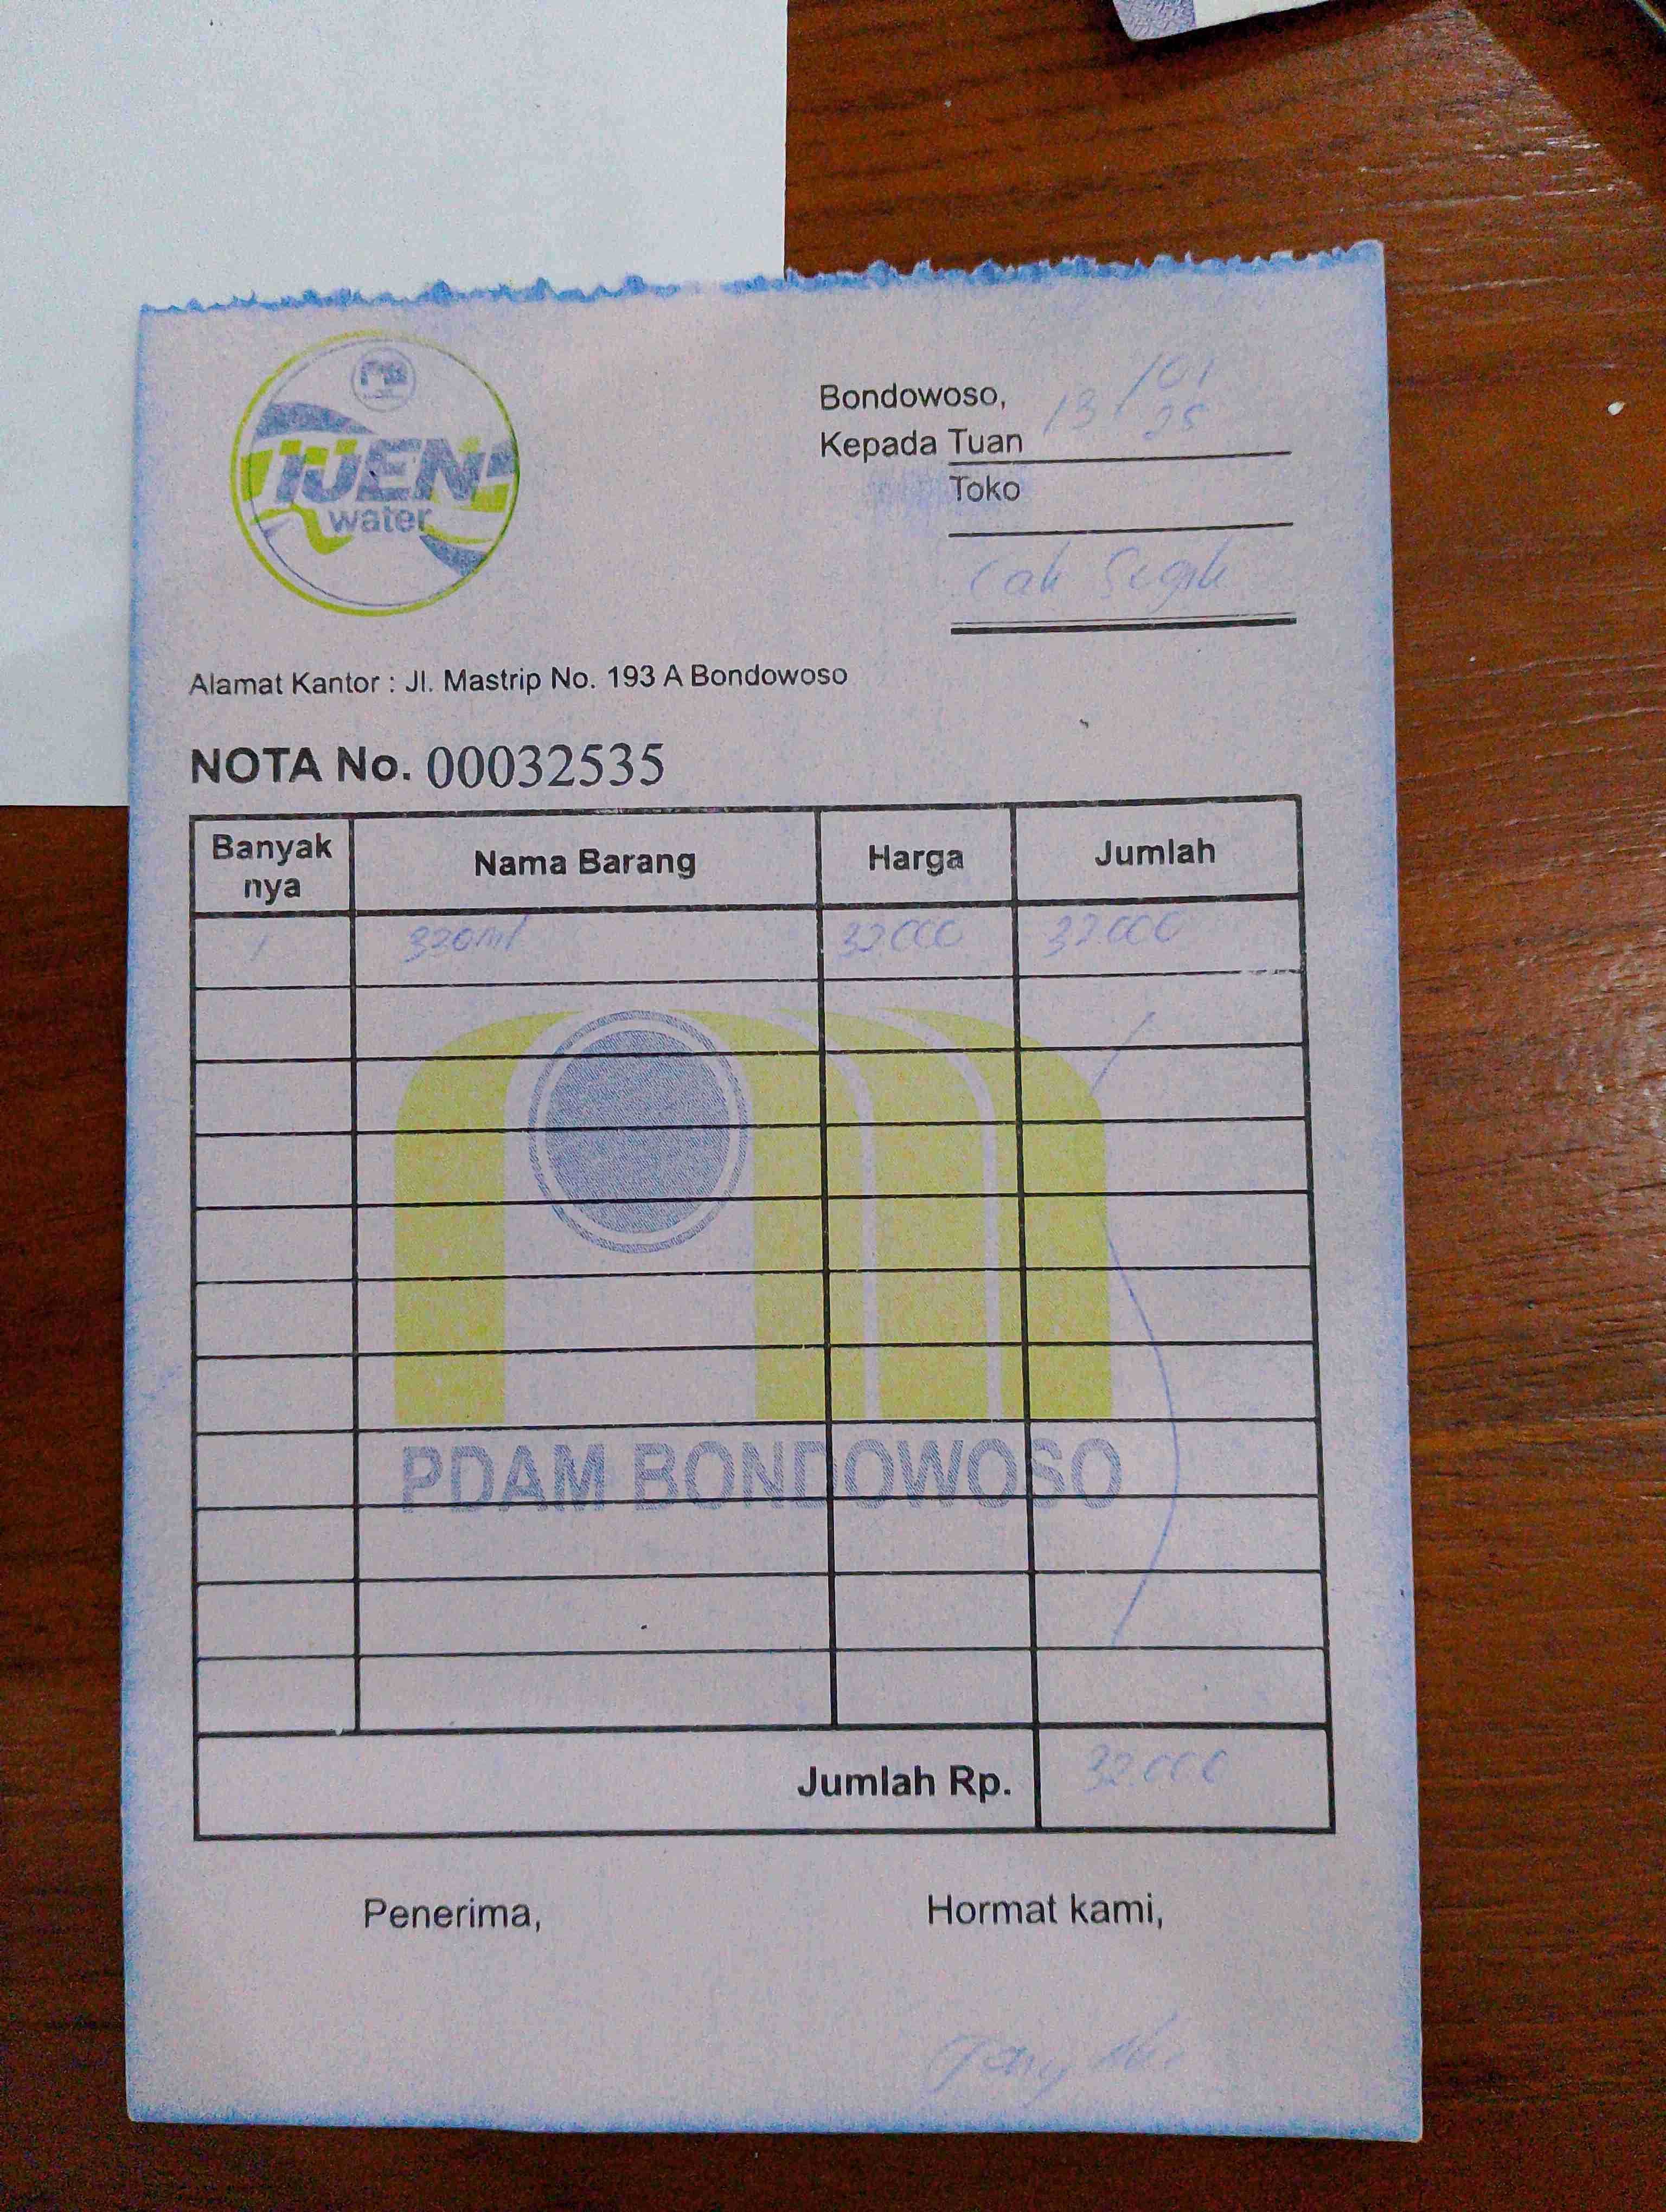 IJEN
water
Bondowoso, 13/01
25
Kepada Tuan
Toko
Cak
Alamat Kantor : Jl. Mastrip No. 193 A Bondowoso
NOTA No. 00032535
Banyak
nya
Nama Barang
Harga
Jumlah
1 330ml 32.000 32.000
PDAM BONDOWOSO
Jumlah Rp. 32.000
Penerima,
Hormat kami,